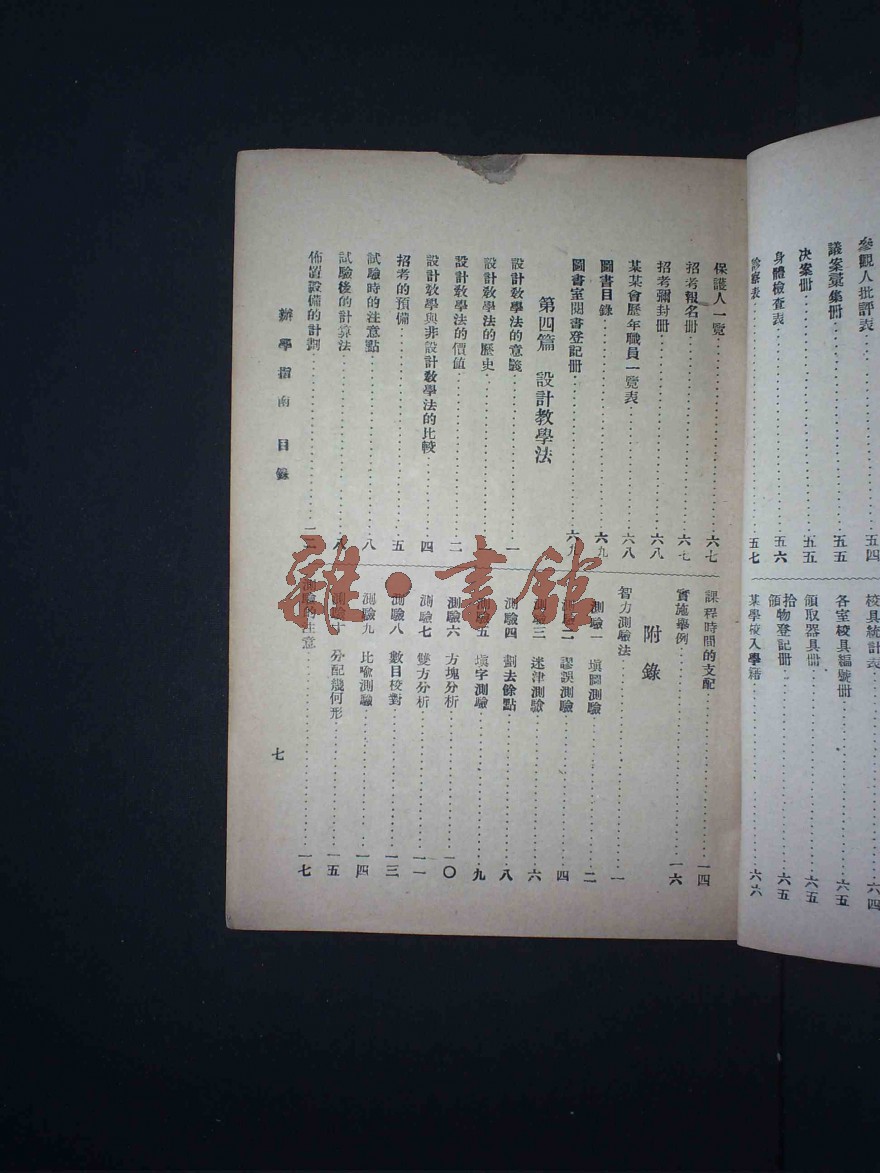 參觀人批評表 五四
議案彙集冊 五五
決案冊 五五
身體檢查表 五六
診察表 五七
校具統計表 六四
各室校具編號冊 六五
領取器具冊 六五
拾領物登記冊 六五
某學校入學籍 六六
保護人一覽 六七
招考報名冊 六七
招考彌封冊 六八
某某會歷年職員一覽表 六八
圖書目錄 六九
圖書室閱書登記冊 六九
第四篇 設計教學法
設計教學法的意義 一
設計教學法的歷史
設計教學法的價值 二
設計教學與非設計教學法的比較 四
招考的預備 五
試驗時的注意點 八
試驗後的計算法 八
佈置設備的計劃
課程時間的支配 一四
實施舉例 一六
附錄
智力測驗法 一
測驗一 填圖測驗 二
測驗二 謬誤測驗 四
測驗三 迷津測驗 六
測驗四 劃去餘點 八
測驗五 填字測驗 九
測驗六 方塊分析 一〇
測驗七 雙方分析 一一
測驗八 數目校對 一三
測驗九 比喻測驗 一四
測驗十 分配幾何形 一五
測驗的注意 一七
辦學指南 目錄
七
雜·書館